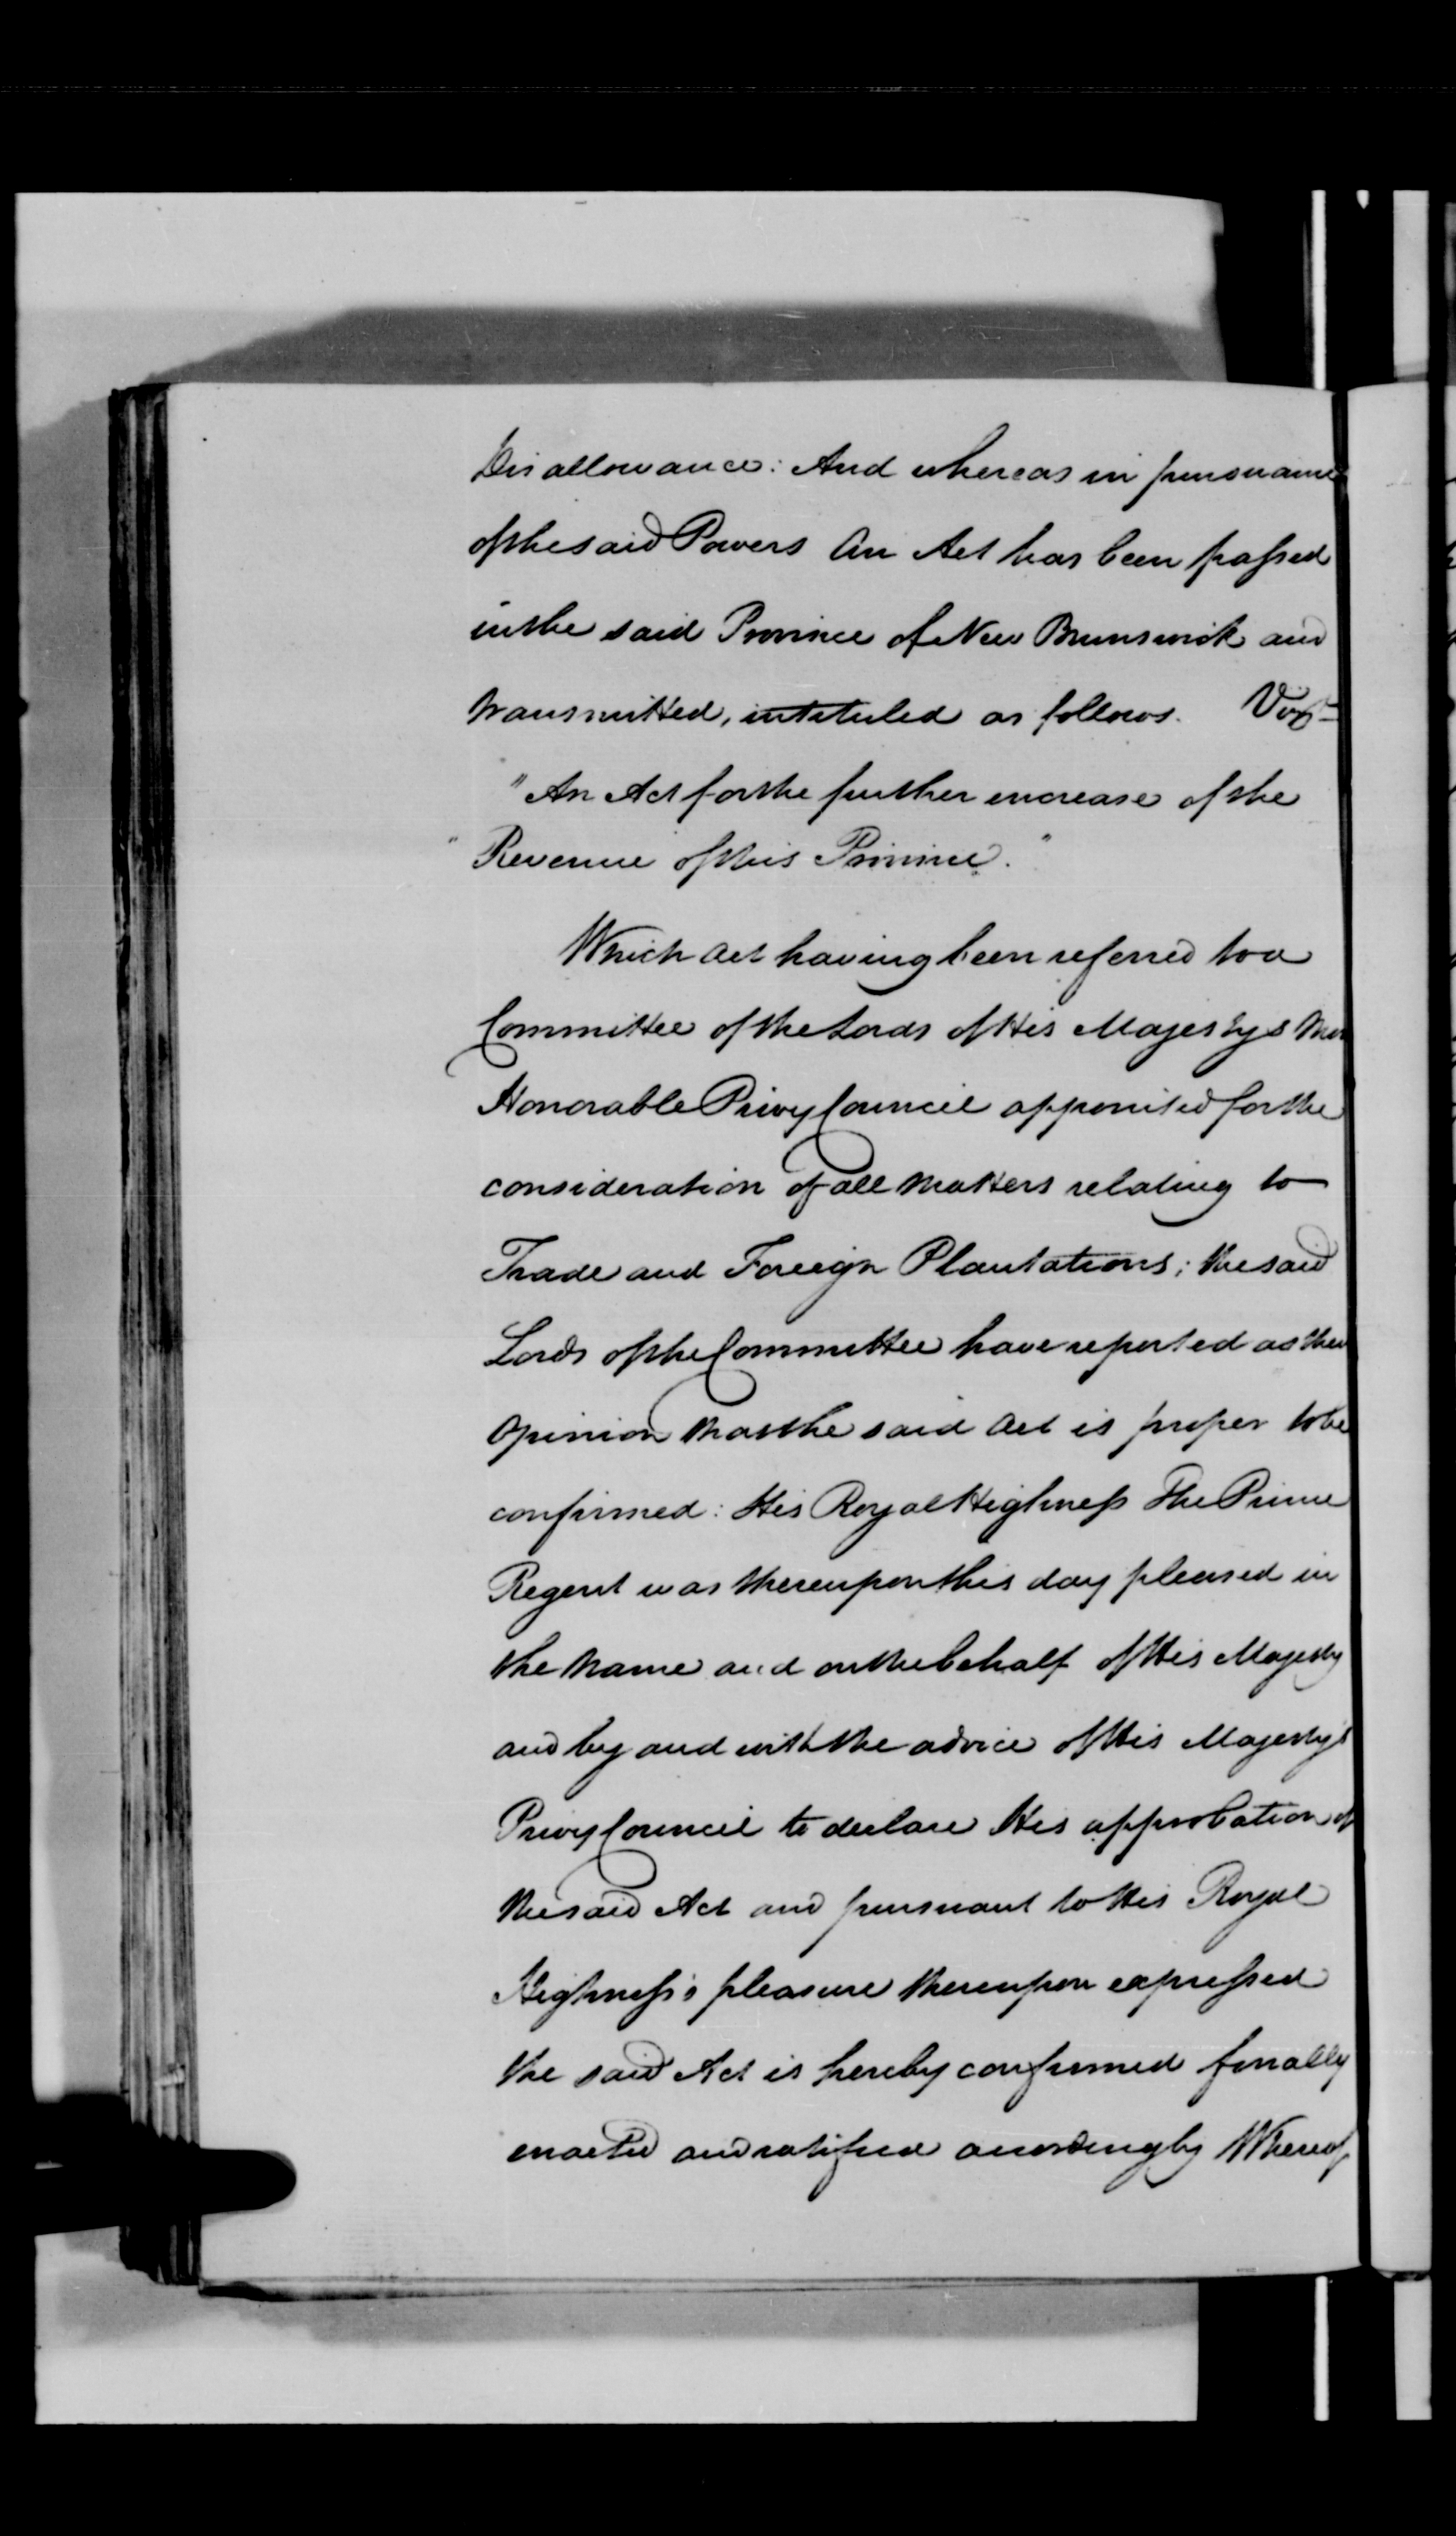 Disallowance: And whereas in pursuance
of the said Powers An Act has been passed
in the said Province of New Brunswick and
transmitted, intituled as follows. Vizt
"An Act for the further increase of the
"Revenue of this Province."
Which Act having been referred to a
Committee of the Lords of His Majesty's Most
Honorable Privy Council appointed for the
consideration of all matters relating to
Trade and Foreign Plantations; the said
Lords of the Committee have reported as their
Opinion that the said Act is proper to be
confirmed: His Royal Highness The Prince
Regent was thereupon this day pleased in
the name and on the behalf of His Majesty
and by and with the advice of His Majesty's
Privy Council to declare His approbation of
the said Act and pursuant to His Royal
Highness's pleasure thereupon expressed
the said Act is hereby confirmed finally
enacted and ratified accordingly Whereof